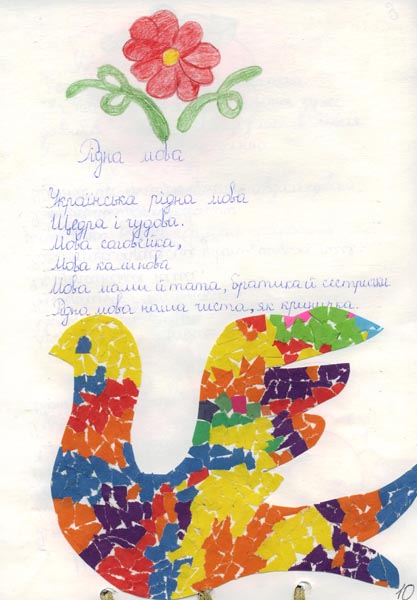 Рідна мова
Українська рідна мова
Щедра і чудова.
Мова соловейка,
Мова калинова
Мова мами й тата, братика й сестрички
Рідна мова наша чиста, як криничка.
10